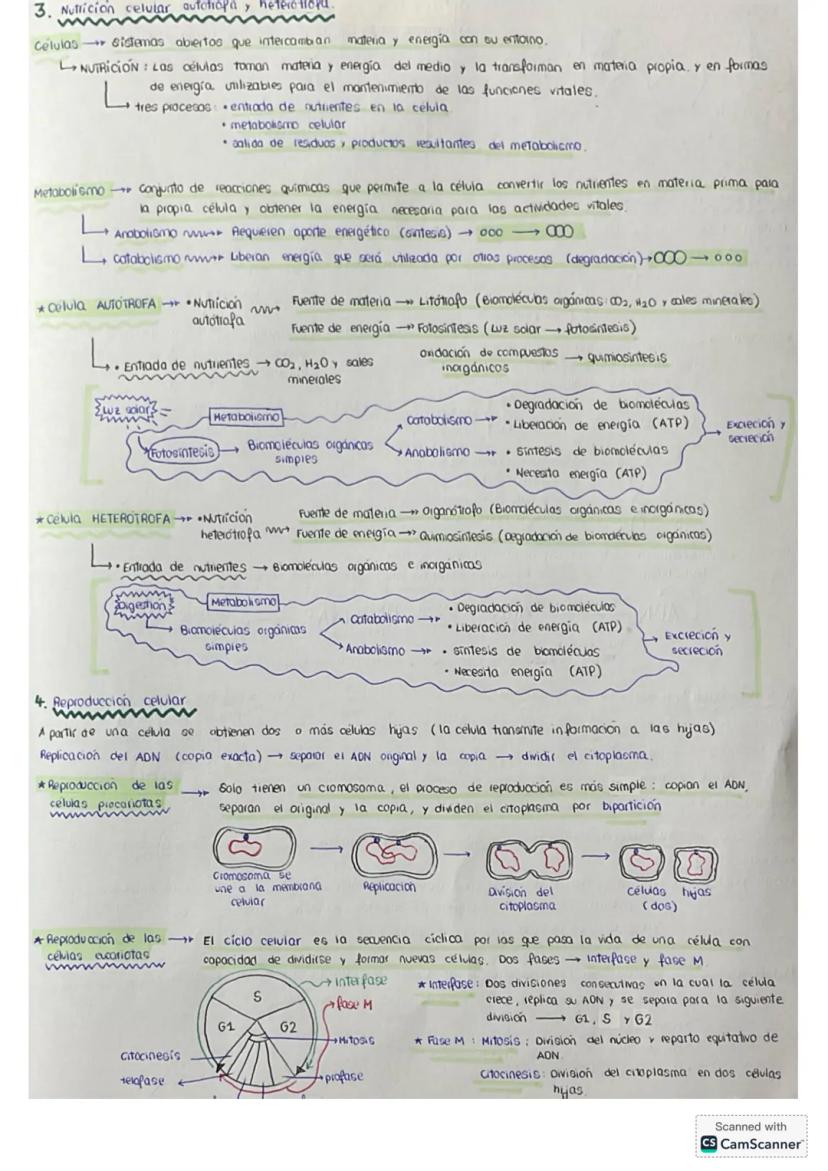 3. Nutrición celular autótrofa y heterótrofa.
Células → Sistemas abiertos que intercambian materia y energía con su entorno.
↳ NUTRICIÓN: Las células toman materia y energía del medio y la transforman en materia propia y en formas
de energía utilizables para el mantenimiento de las funciones vitales.
↳ tres procesos: • entrada de nutrientes en la célula
• metabolismo celular
• salida de residuos y productos resultantes del metabolismo.
Metabolismo → Conjunto de reacciones químicas que permite a la célula convertir los nutrientes en materia prima para
la propia célula y obtener la energía necesaria para las actividades vitales.
↳ Anabolismo → Requieren aporte energético (síntesis) → ooo → OOO
↳ Catabolismo → Liberan energía que será utilizada por otros procesos (degradación) → OOO → ooo
* Célula AUTÓTROFA → • Nutrición autótrofa
Fuente de materia → Litótrofo (Biomoléculas orgánicas: CO₂, H₂O y sales minerales)
Fuente de energía → Fotosíntesis (Luz solar → fotosíntesis)
oxidación de compuestos inorgánicos → quimiosíntesis
↳ • Entrada de nutrientes → CO₂, H₂O y sales
minerales
Luz solar
Metabolismo
Fotosíntesis → Biomoléculas orgánicas
simples
Catabolismo → • Degradación de biomoléculas
• Liberación de energía (ATP)
Anabolismo → • síntesis de biomoléculas
• Necesita energía (ATP)
→ Excreción y
secreción
* Célula HETERÓTROFA → • Nutrición
heterótrofa
Fuente de materia → Organótrofo (Biomoléculas orgánicas e inorgánicas)
Fuente de energía → Quimiosíntesis (Degradación de biomoléculas orgánicas)
↳ • Entrada de nutrientes → Biomoléculas orgánicas e inorgánicas
Digestión
Metabolismo
Biomoléculas orgánicas
simples
Catabolismo → • Degradación de biomoléculas
• Liberación de energía (ATP)
Anabolismo → • síntesis de biomoléculas
• Necesita energía (ATP)
→ Excreción y
secreción
4. Reproducción celular
A partir de una célula se obtienen dos o más células hijas (la célula transmite información a las hijas)
Replicación del ADN (copia exacta) → separar el ADN original y la copia → dividir el citoplasma.
* Reproducción de las
células procariotas
→ Solo tienen un cromosoma, el proceso de reproducción es más simple: copian el ADN,
separan el original y la copia, y dividen el citoplasma por bipartición
Cromosoma se
une a la membrana
celular
Replicación
División del
citoplasma
células hijas
(dos)
* Reproducción de las
células eucariotas
→ El ciclo celular es la secuencia cíclica por las que pasa la vida de una célula con
capacidad de dividirse y formar nuevas células. Dos fases → Interfase y fase M.
Interfase
fase M
S
G1
G2
Mitosis
citocinesis
telofase
profase
* Interfase: Dos divisiones consecutivas en la cual la célula
crece, réplica su ADN y se separa para la siguiente
división → G1, S y G2
* Fase M: Mitosis: División del núcleo y reparto equitativo de
ADN.
Citocinesis: División del citoplasma en dos células
hijas.
Scanned with
CS CamScanner